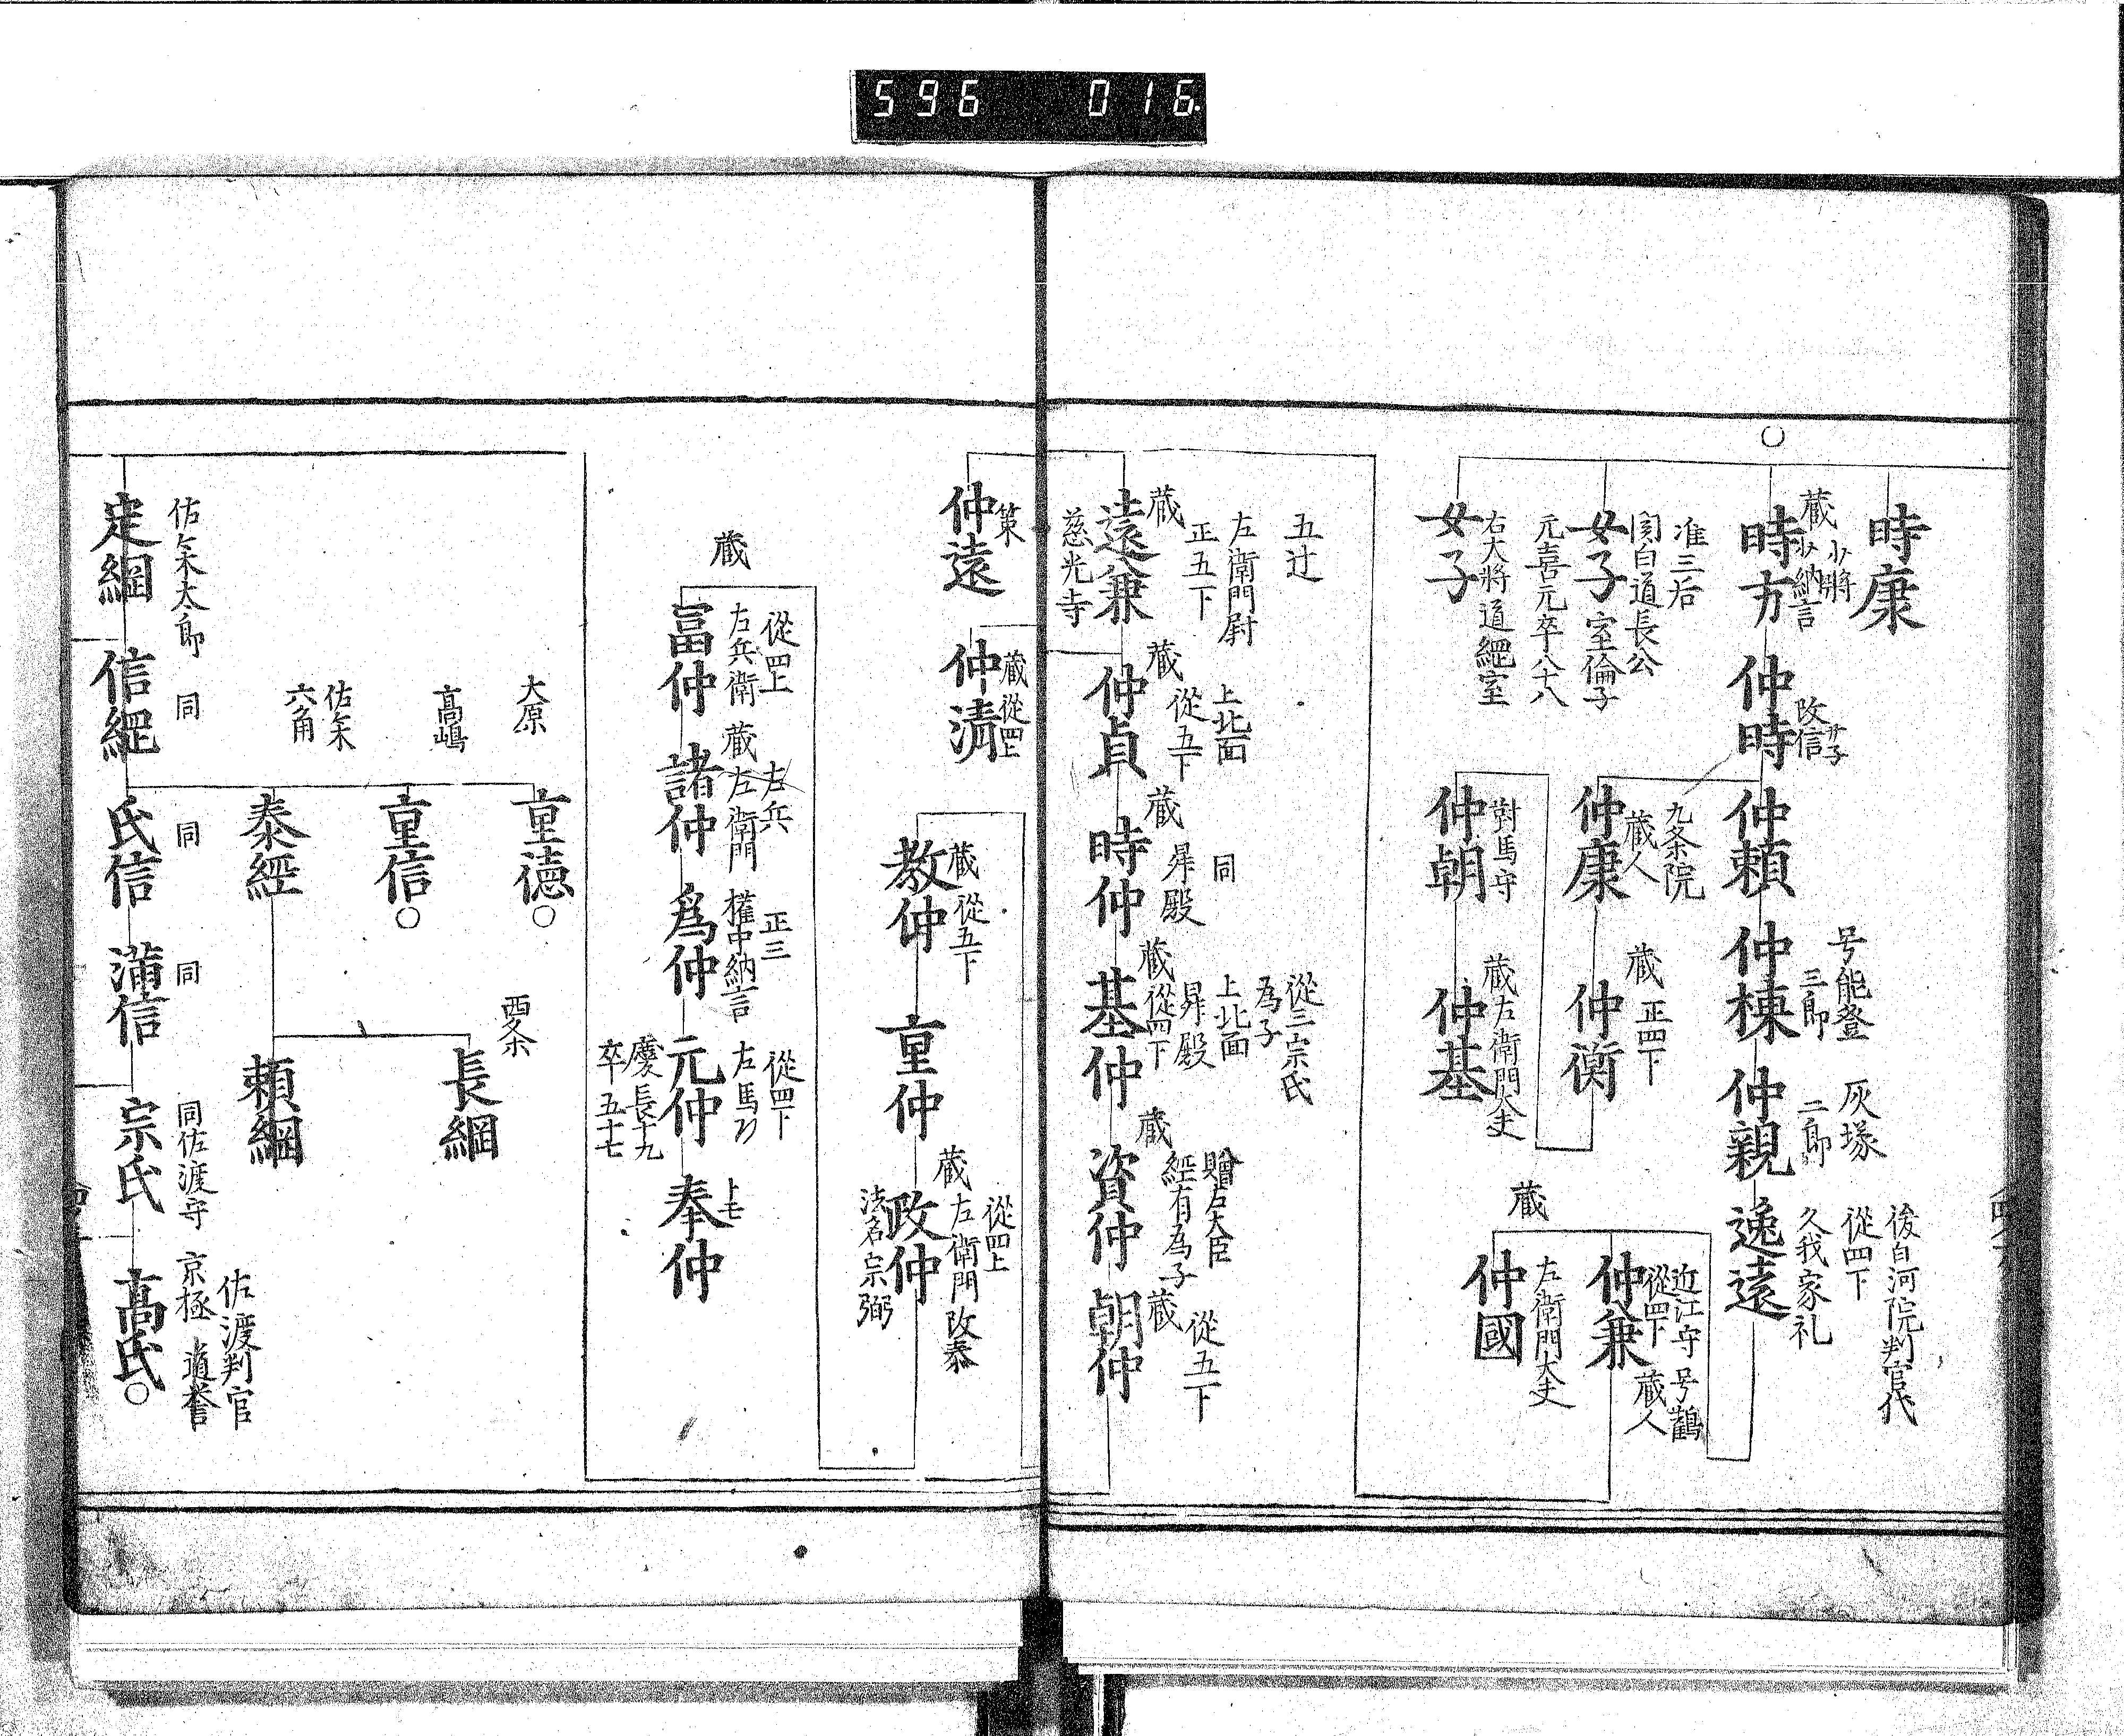 596 016
時康
時方
蔵 少將
少納言
仲時
改信
仲頼
仲棟
号能登
三郎
仲親
灰塚
二郎
逸遠
後白河院判官代
從四下
久我家礼
女子
准三后
関白道長公
室倫子
元喜元卒八十八
仲康
九条院
蔵人
仲衡
蔵 正四下
女子
右大將道綱室
仲朝
對馬守
仲基
蔵左衛門大夫
仲兼
近江守 号鶴
從四下 蔵人
蔵
仲國
左衛門大夫
五辻
遠兼
左衛門尉
蔵 正五下
慈光寺
仲貞
上北面
蔵 從五下
時仲
同
蔵 昇殿
基仲
從三宗氏
為子
上北面
昇殿
蔵 從四下
資仲
贈左大臣
經有為子
蔵
朝仲
蔵 從五下
仲遠
策
仲清
蔵從四上
教仲
蔵從五下
重仲
政仲
從四上
蔵左衛門 改泰
法名宗弼
蔵
冨仲
從四上
左兵衛
諸仲
左兵
蔵左衛門
為仲
正三
權中納言
元仲
從四下
左馬
慶長十九
卒五十七
奉仲
大原
重德
高嶋
重信
佐々木
六角
泰經
西条
長綱
頼綱
佐々木太郎
定綱
同
信綱
同
氏信
同
満信
同佐渡守
宗氏
佐渡判官
京極 道誉
高氏